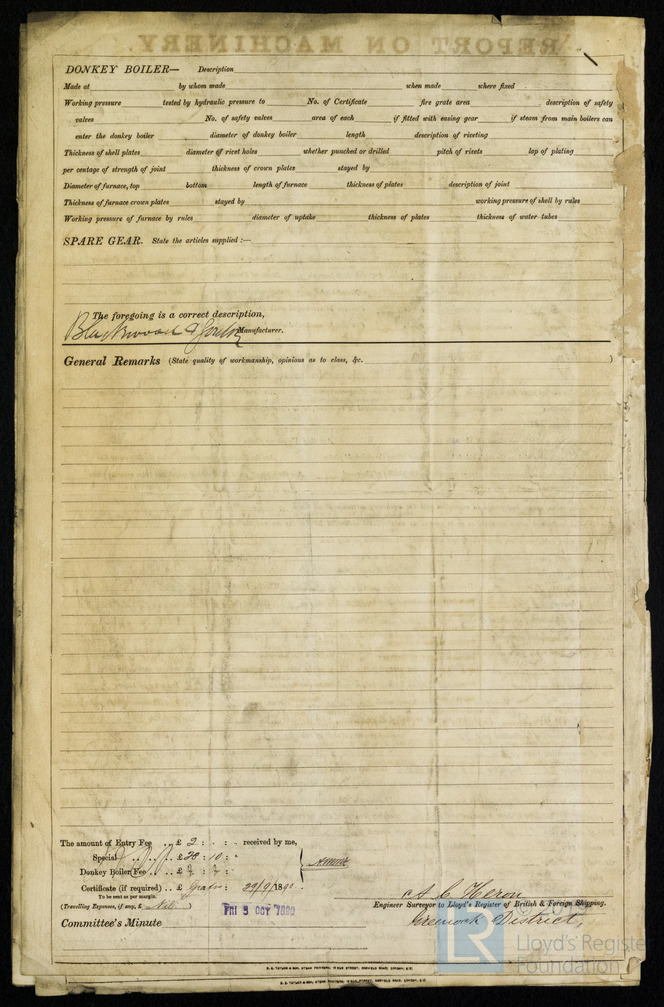 REPORT ON MACHINERY.
DONKEY BOILER— Description
Made at by whom made when made where fixed
Working pressure tested by hydraulic pressure to No. of Certificate fire grate area description of safety
valves No. of safety valves area of each if fitted with easing gear if steam from main boilers can
enter the donkey boiler diameter of donkey boiler length description of riveting
Thickness of shell plates diameter of rivet holes whether punched or drilled pitch of rivets lap of plating
per centage of strength of joint thickness of crown plates stayed by
Diameter of furnace, top bottom length of furnace thickness of plates description of joint
Thickness of furnace crown plates stayed by working pressure of shell by rules
Working pressure of furnace by rules diameter of uptake thickness of plates thickness of water tubes
SPARE GEAR. State the articles supplied :—
The foregoing is a correct description,
Blackwood & Gordon Manufacturer.
General Remarks (State quality of workmanship, opinions as to class, &c. )
The amount of Entry Fee .. £ 2 : - : - received by me,
Special .. .. £ 28 : 10 : -
Donkey Boiler Fee .. £
Certificate (if required) .. £ Gratis : 29/9/1890
To be sent as per margin.
(Travelling Expenses, if any, £ Nil )
FRI 3 OCT 1890
A. C. Heron
Engineer Surveyor to Lloyd's Register of British & Foreign Shipping.
Greenock District,
Committee's Minute
LR Lloyd's Register
Foundation